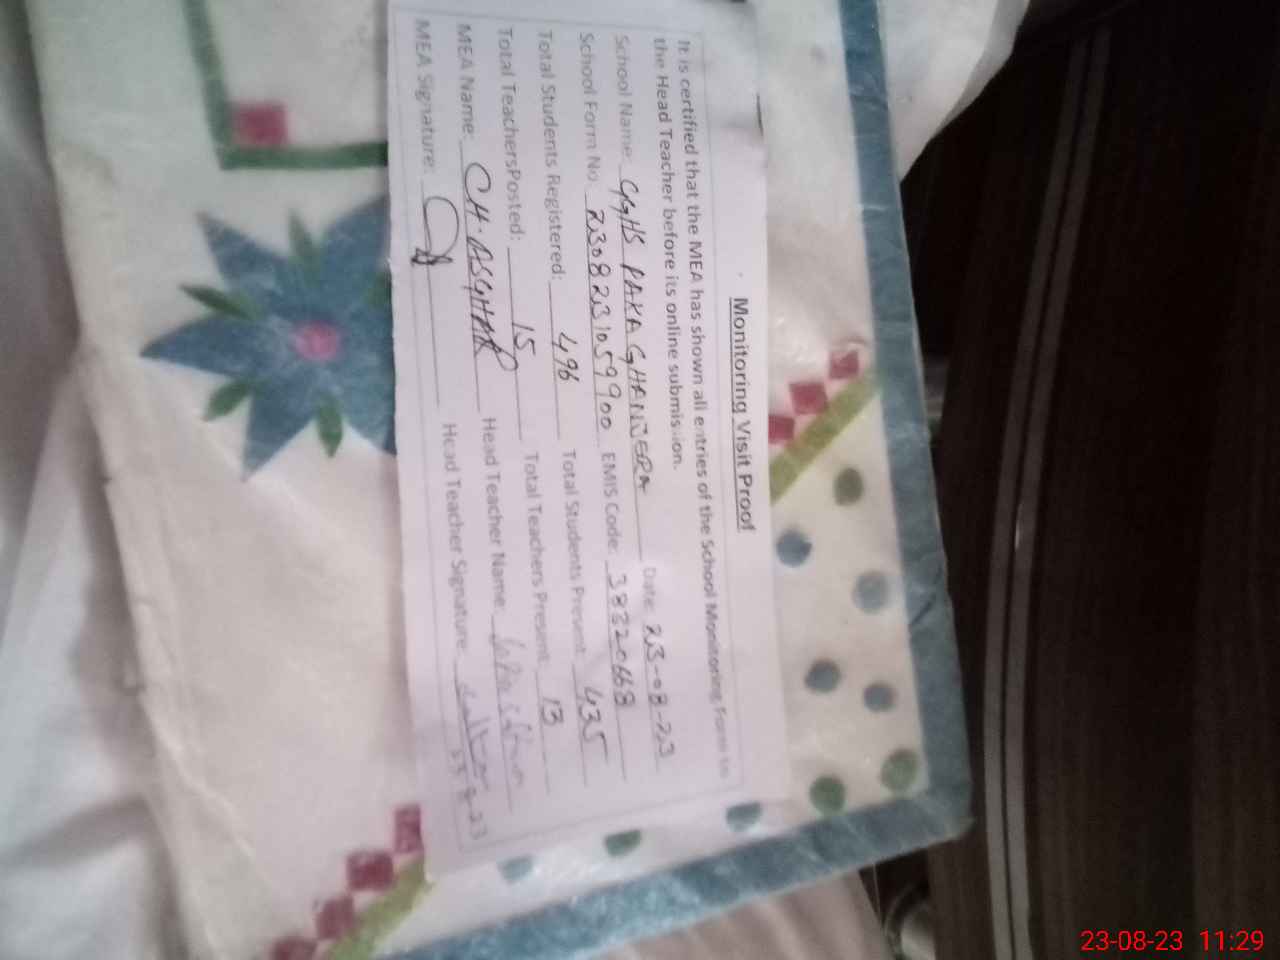 Monitoring Visit Proof
It is certified that the MEA has shown all entries of the School Monitoring Form to
the Head Teacher before its online submission.
School Name: GGHS PAKA GHANJERA Date: 23-08-23
School Form No. 2308231059900 EMIS Code: 38320668
Total Students Registered: 496 Total Students Present: 435
Total TeachersPosted: 15 Total Teachers Present: 13
MEA Name: CH. ASGHAR Head Teacher Name:
MEA Signature: Head Teacher Signature:
23-08-23 11:29